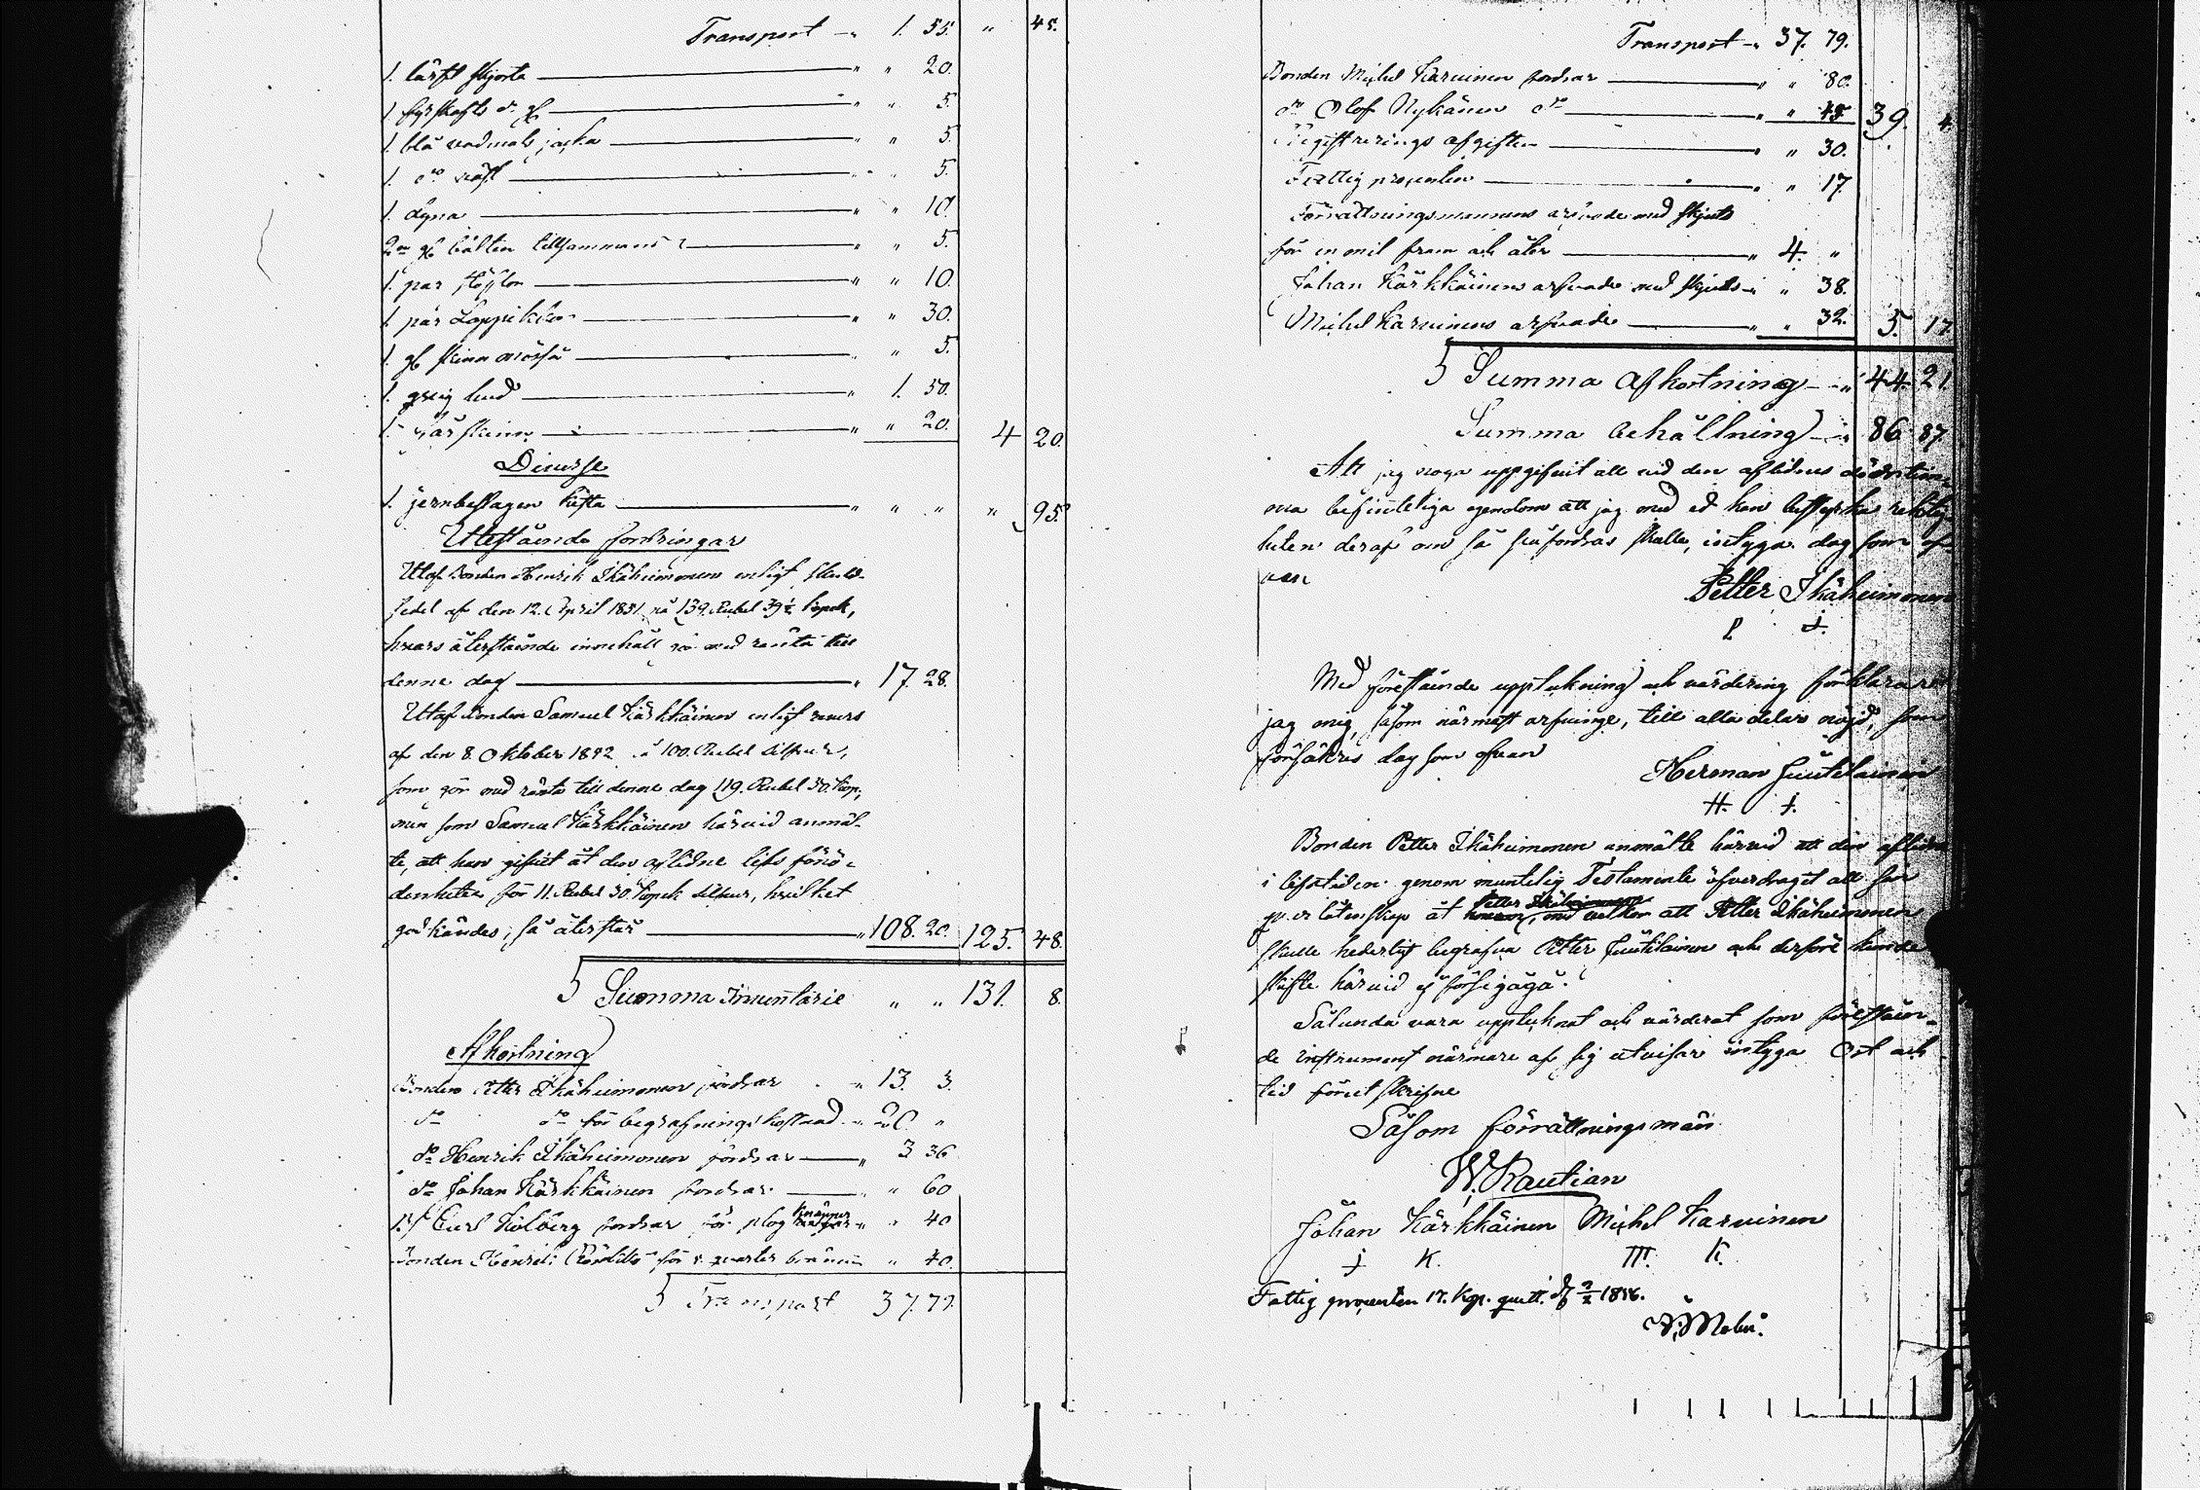 Transport - " 1. 55. " 45.
1. lärft skjorta " " 20.
1 fyrskafts do gl " " 5.
1. blå vadmals jacka " " 5.
1. do väst " " 5.
1. dyna " " 10.
2ne gl bälten tillsammans " " 5.
1. par stöflor " " 10.
1. par Lappikkor " " 30.
1. gl skinn mössa " " 5.
1. hud " 1. 50.
1. fårskinn " " 20. 4 20.
Diverse
1. jernbeslagen kista " " " " 95.
Utestående fordringar
Utaf Bonden Henrik Ikäheimonen enligt skuld-
sedel af den 12. April 1851 på 139. Rubel 39½ kopek,
hvars återstående innehåll gör med ränta till
denne dag " 17. 28.
Utaf Bonden Samuel Kärkkäinen enligt revers
af den 8. Oktober 1892 å 100. Rubel silfver,
som gör med ränta till denne dag 119. Rubel 50. kop,
men som Samuel Kärkkäinen härvid anmäl-
te, att han gifvit åt den aflidne lifs förnö-
denheter för 11. Rubel 30. kopek silfver, hvilket
godkändes, så återstår " 108. 20. 125. 48.
Summa Inventarie " " 131. 8.
Afkortning
Bonden Petter Ikäheimonen fordrar " 13. 3.
do do för begrafningskostnad " 20 "
do Henrik Ikäheimonen fordrar " 3 36
do Johan Kärkkäinen fordrar " " 60
Carl Kolberg fordrar för plog " " 40
Bonden Henrik för 1 quarter brännvin " 40.
Transport 37. 79.
Transport - " 37. 79.
Bonden Michel Karvinen fordrar " " 80.
do Olof Nykänen do " " 45. 39. 4.
Registrerings afgiften " " 30.
Fattig procenten " " 17
Förrättningsmannens arfvode med skjuts
för en mil fram och åter " 4. "
Johan Kärkkäinens arfvode med skjuts " " 38.
Michel Karvinens arfvode " " 32. 5. 17
Summa Afkortning " 44. 21.
Summa behållning " 86. 87.
Att jag noga uppgifvit all vid den aflidnes dödstim-
ma befinteliga egendom att jag med ed kan bestyrka riktig-
heten deraf om så påfordras skulle, intygar dag som of-
van
Petter Ikäheimonen
P. J.
Med förestående uppteckning och värdering förklarar
jag mig, såsom närmast arfvinge, till alla delar nöjd, som
försäkras dag som ofvan
Herman Juutilainen
H. J.
Bonden Petter Ikäheimonen anmälte härvid att den aflidne
i lifstiden genom muntelig Testamente öfverdraget all sin
qvarlåtenskap åt Petter Ikäheimonen, med vilkor att Petter Ikäheimonen
skulle hederligt begrafva Petter Juutilainen och derföre kunde
skifte härvid ej försiggå.
Sålunda vara upptecknat och värderat som förestaen-
de instrument närmare af sig utvisar intyga Ort och
tid förut skrifne
Såsom förrättningsmän
W. Rautian
Johan Kärkkäinen Michel Karvinen
J K. M. K.
Fattig procenten 17. Kop. quitt. d 2/2 1856.